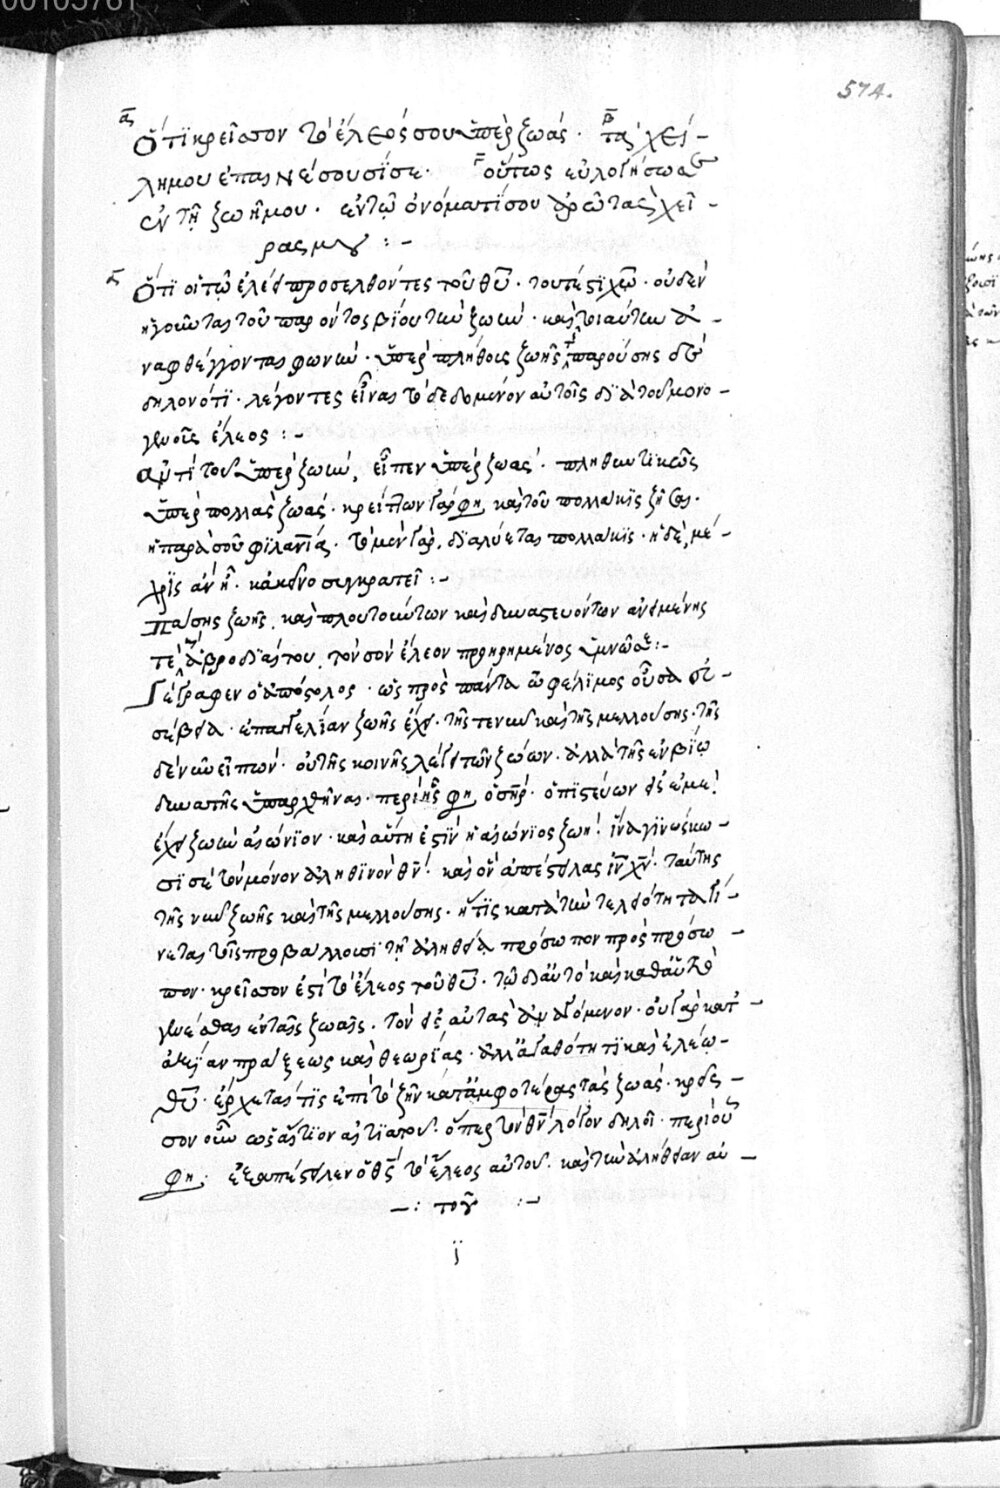 00105761
574.
α Ὅτι κρεῖσσον τὸ ἔλεός σου ὑπὲρ ζωάς · β τὰ χεί-
λη μου ἐπαινέσουσί σε · γ οὕτως εὐλογήσω σε
ἐν τῇ ζωῇ μου · ἐν τῷ ὀνόματί σου ἀρῶ τὰς χεῖ-
ρας μου :-
α Ὅτι οἱ τῷ ἐλέει προσελθόντες τοῦ θυ · τουτέστι χω · οὐδὲν
ἡγοῦνται τοῦ παρόντος βίου τὴν ζωήν · καὶ τοιαύτην ἀ-
ναφθέγγονται φωνήν · ὑπὲρ πλήθους ζωῆς τῆς παρούσης
δηλονότι · λέγοντες εἶναι τὸ δεδομένον αὐτοῖς διὰ τοῦ μονο-
γενοῦς ἔλεος :-
ἀντὶ τοῦ ὑπὲρ ζωήν, εἶπεν ὑπὲρ ζωάς · πληθυντικῶς
ὑπὲρ πολλὰς ζωάς · κρείττων γάρ φη, καὶ τοῦ πολλάκις ζῆσαι ·
ἡ παρὰ σοῦ φιλανία · τὸ μὲν γάρ, διαλύεται πολλάκις · ἡ δὲ, μέ-
χρις ἂν ᾖ · κἀκεῖνο συγκρατεῖ :-
Πάσης ζωῆς, καὶ πλουτούντων καὶ δυναστευόντων ἀνειμένης
τὲ ἁβροδιαίτου, τὸν σὸν ἔλεον προῃρημένος ὑμνῶ :-
Γέγραφεν ὁ ἀπόστολος · ὡς πρὸς πάντα ὠφέλιμος οὖσα εὐ-
σέβεια · ἐπαγγελίαν ζωῆς ἔχει · τῆς τε νῦν καὶ τῆς μελλούσης · τῆς
δὲ νῦν εἰπών · οὐ τῆς κοινῆς λέγει τῶν ζώων · ἀλλὰ τῆς ἐν βίῳ
δυνατῆς ὑπαρχθῆναι · περὶ ἧς φη ὁ σηρ · ὁ πιστεύων εἰς ἐμὲ!
ἔχει ζωὴν αἰώνιον · καὶ αὕτη ἐστὶν ἡ αἰώνιος ζωή! ἵνα γινώσκω-
σί σε τὸν μόνον ἀληθινὸν θν · καὶ ὃν ἀπέστειλας ιν χν · ταύτης
τῆς νῦν ζωῆς καὶ τῆς μελλούσης · ἥτις κατὰ τὴν τελειότητα γί-
νεται τοῖς προβάλλουσι τῇ ἀληθείᾳ πρόσωπον πρὸς πρόσω-
πον · κρεῖσσον ἐστὶ τὸ ἔλεος τοῦ θυ · τῷ δι' αὐτὸ καὶ καθ' αὐτὸ
γενέσθαι ἐν ταῖς ζωαῖς · τὸν εἰς αὐτὰς ἀναγόμενον · οὐ γὰρ κατ'
ἀξίαν πράξεως καὶ θεωρίας · ἀλλ' ἀγαθότητι καὶ ἐλέῳ-
θυ · ἔρχεταί τις ἐπὶ τὸ ζῆν κατ' ἀμφοτέρας τὰς ζωάς · κρεῖσ-
σον οὖν ὡς αἴτιον αἰτιατοῦ · ὅπερ τὸν θν λόγον δηλοῖ · περὶ οὗ
φη · ἐξαπέστειλεν ὁ θς τὸ ἔλεος αὐτοῦ · καὶ τὴν ἀλήθειαν αὐ-
-: τοῦ :-
ϊ